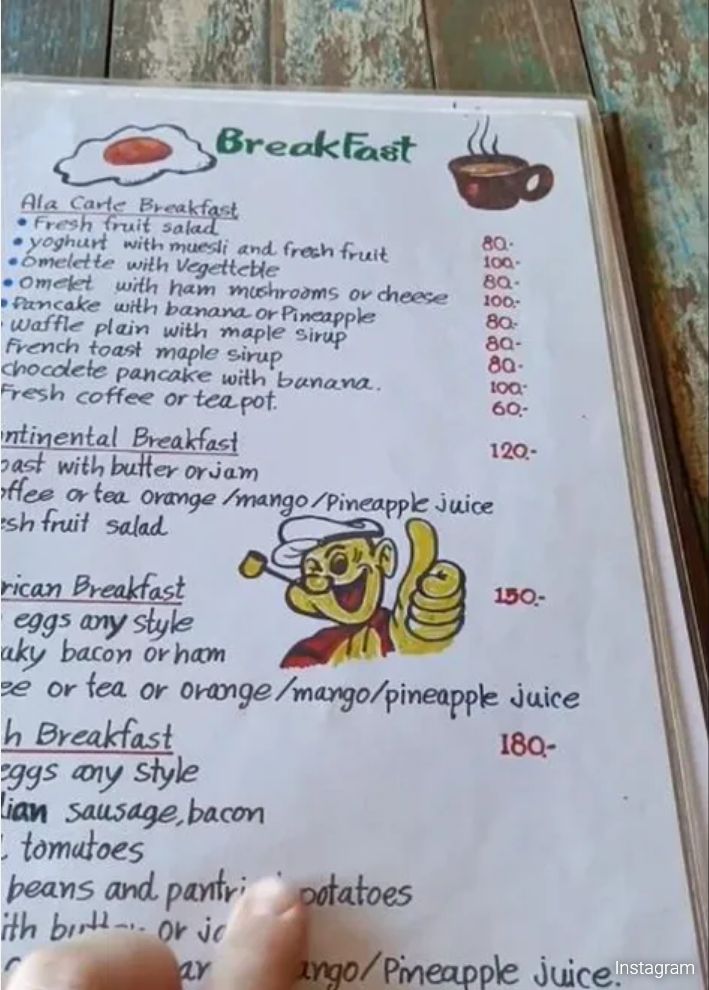 BreakFast
Ala Carte Breakfast
• Fresh fruit salad 80.-
• yoghurt with muesli and fresh fruit 100.-
• omelette with Vegetteble 80.-
• omelet with ham mushrooms or cheese 100.-
• Pancake with banana or Pineapple 80.-
waffle plain with maple sirup 80.-
French toast maple sirup 80.-
chocolete pancake with banana. 100.-
Fresh coffee or tea pot. 60.-
ntinental Breakfast 120.-
oast with butter or jam
offee or tea orange /mango/Pineapple juice
esh fruit salad
rican Breakfast 150.-
eggs any style
aky bacon or ham
ee or tea or orange/mango/pineapple juice
h Breakfast 180.-
eggs any style
lian sausage, bacon
tomatoes
beans and potatoes
ith or
ango/Pineapple juice.
Instagram